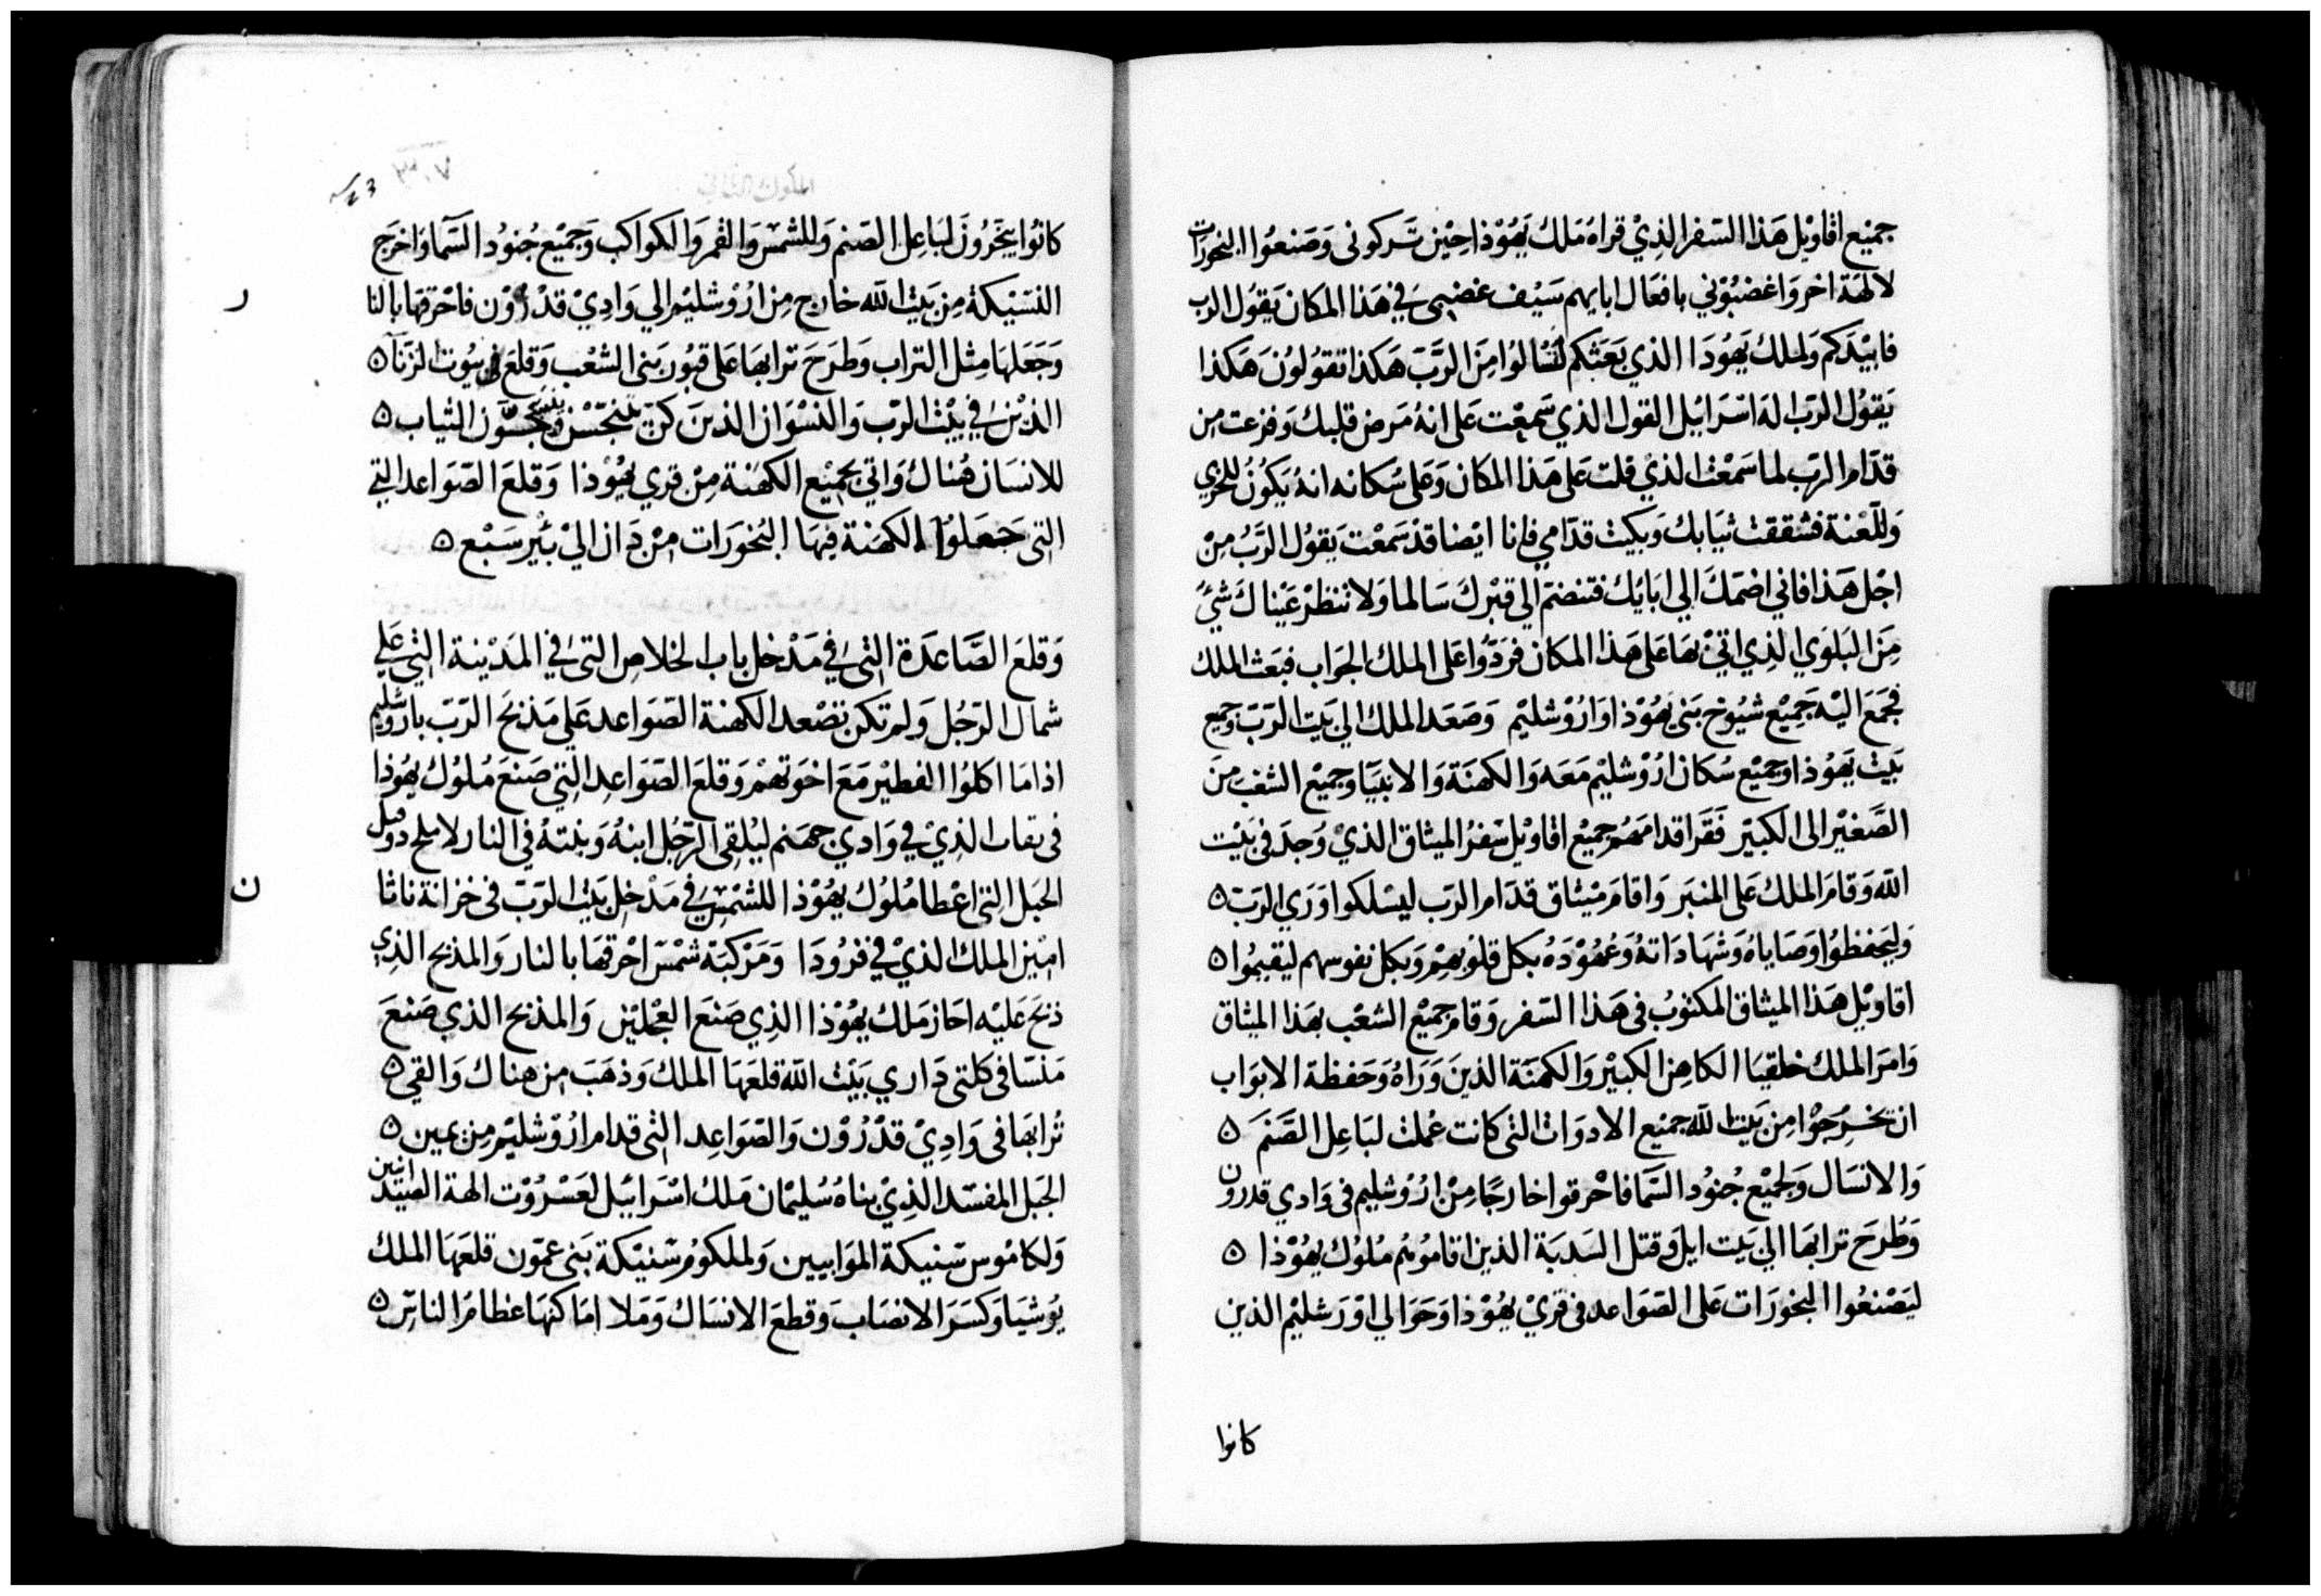 جميع اقاويل هذا السفر الذي قراه ملك يهوذا حين تركوني وصنعوا البخورات
لالهة اخر واغضبوني بافعال ابايهم سيف غضبي في هذا المكان يقول الرب
فابيدكم ولملك يهودا الذي بعثكم لتسالوا من الرب هكذا تقولون هكذا
يقول الرب اله اسرايل القول الذي سمعت على انه مرض قلبك وفزعت من
قدام الرب لما سمعت الذي قلت على هذا المكان وعلى سكانه انه يكون للخزي
وللعنة فشققت ثيابك وبكيت قدامي فانا ايضا قد سمعت يقول الرب من
اجل هذا فاني اضمك الي ابايك فتنضم الي قبرك سالما ولا تنظر عيناك شي
من البلوي الذي اتي بها على هذا المكان فردوا على الملك الجواب فبعث الملك
فجمع اليه جميع شيوخ بني يهوذا واروشليم وصعد الملك الي بيت الرب وجميع
بيت يهوذا وجميع سكان اروشليم معه والكهنة والانبيا وجميع الشعب من
الصغير الى الكبير فقرا قدامهم جميع اقاويل سفر الميثاق الذي وجد في بيت
الله وقام الملك على المنبر واقام ميثاق قدام الرب ليسلكوا وري الرب ٥
وليحفظوا وصاياه وشهاداته وعهوده بكل قلوبهم وبكل نفوسهم ليقيموا ٥
اقاويل هذا الميثاق المكتوب في هذا السفر وقام جميع الشعب بهذا الميثاق
وامر الملك خلقيا الكاهن الكبير والكهنة الذين وراه وحفظة الابواب
ان يخرجوا من بيت الله جميع الادوات التي كانت عملت لباعل الصنم ٥
والانسال ولجميع جنود السما فاحرقوا خارجا من اروشليم في وادي قدرون
وطرح ترابها الي بيت ايل وقتل السدبة الذين اقاموهم ملوك يهوذا ٥
ليصنعوا البخورات على الصواعد في قري يهوذا وحوالي اورشليم الذين
كانوا
كانوا يبخرون لباعل الصنم وللشمس والقمر والكواكب وجميع جنود السما واخرج
النسيكة من بيت الله خارج من اروشليم الي وادي قدرون فاحرقها بالنا
ر
وجعلها مثل التراب وطرح ترابها على قبور بني الشعب وقلع بيوت الزنا ٥
الذين في بيت الرب والنسوان الذين كن الثياب ٥
للانسان هناك واتي بجميع الكهنة من قري يهوذا وقلع الصواعد التي
التي جعلوا الكهنة فيها البخورات من دان الي بير سبع ٥
وقلع الصاعدة التي في مدخل باب الخلاص التي في المدينة التي علي
شمال الرجل ولم تكن تصعد الكهنة الصواعد على مذبح الرب باروشليم
اذا ما اكلوا الفطير مع اخوتهم وقلع الصواعد التي صنع ملوك يهوذا
في الذي في وادي جهنم ليلقي الرجل ابنه وبنته في النار وقتل
الخيل التي اعطا ملوك يهوذا للشمس في مدخل بيت الرب في خزانة ناثا
ن
امين الملك الذي في فرودا ومركبة شمس احرقها بالنار والمذبح الذي
ذبح عليه احاز ملك يهوذا الذي صنع العجلين والمذبح الذي صنع
منسا في كلتي داري بيت الله قلعها الملك وذهب من هناك والقي ٥
ترابها في وادي قدرون والصواعد التي قدام اروشليم من يمين ٥
الجبل المفسد الذي بناه سليمان ملك اسراييل لعسروت الهة الصيدانيين
ولكاموس سنيكة الموابيين ولملكوم سنيكة بني عمون قلعها الملك
يوشيا وكسر الانصاب وقطع الانساك وملا اماكنها عظام الناس ٥